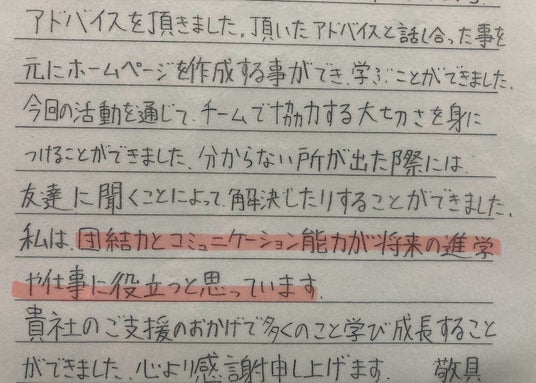 アドバイスを頂きました。頂いたアドバイスと話し合った事を
元にホームページを作成する事ができ、学ぶことができました。
今回の活動を通じて、チームで協力する大切さを身に
つけることができました。分からない所が出た際には、
友達に聞くことによって、解決したりすることができました。
私は、団結力とコミュニケーション能力が将来の進学
や仕事に役立つと思っています。
貴社のご支援のおかげで多くのこと学び成長すること
ができました。心より感謝申し上げます。 敬具